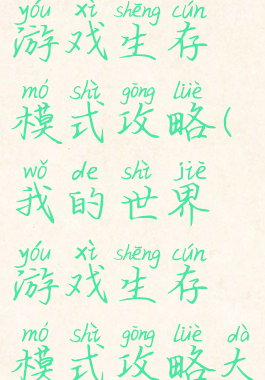 yóu xì shēng cún
游戏生存
mó shì gōng lüè
模式攻略(
wǒ de shì jiè
我的世界
yóu xì shēng cún
游戏生存
mó shì gōng lüè dà
模式攻略大